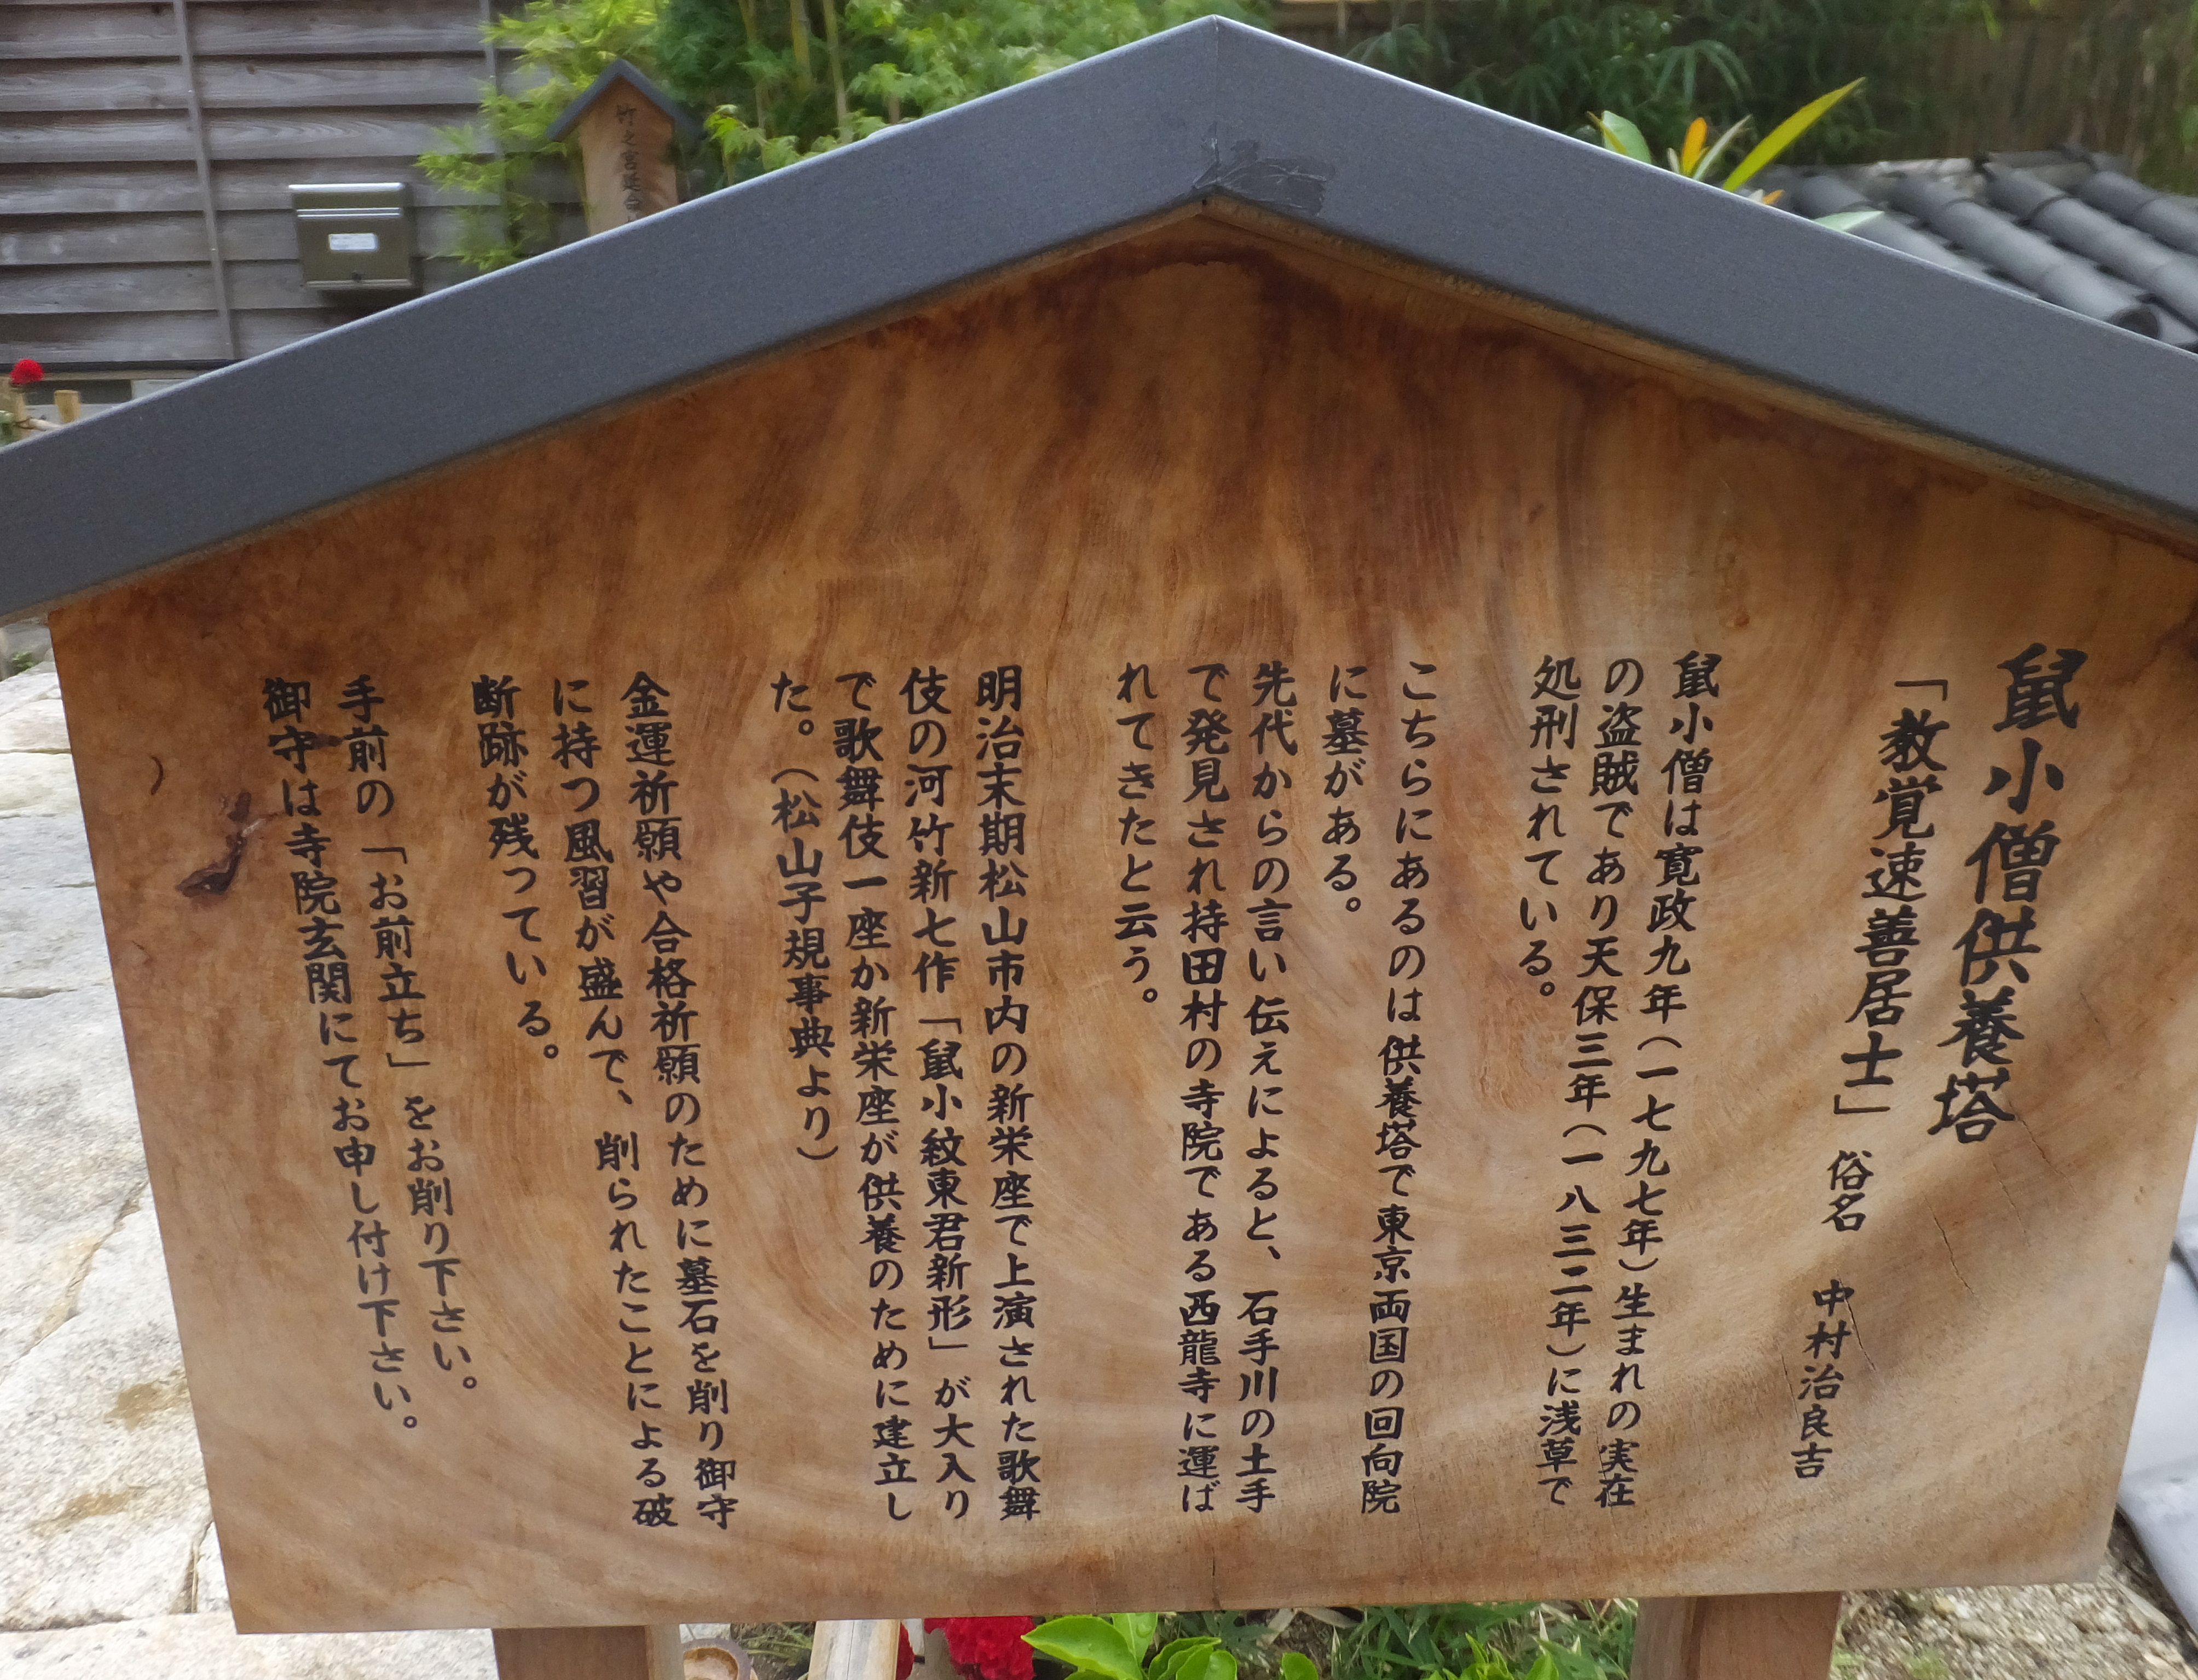 鼠小僧供養塔
「教覚速善居士」 俗名 中村治良吉
鼠小僧は寛政九年(一七九七年)生まれの実在
の盗賊であり天保三年(一八三二年)に浅草で
処刑されている。
こちらにあるのは供養塔で東京両国の回向院
に墓がある。
先代からの言い伝えによると、石手川の土手
で発見され持田村の寺院である西龍寺に運ば
れてきたと云う。
明治末期松山市内の新栄座で上演された歌舞
伎の河竹新七作「鼠小紋東君新形」が大入り
で歌舞伎一座か新栄座が供養のために建立し
た。(松山子規事典より)
金運祈願や合格祈願のために墓石を削り御守
に持つ風習が盛んで、削られたことによる破
断跡が残っている。
手前の「お前立ち」をお削り下さい。
御守は寺院玄関にてお申し付け下さい。
竹之宮延命